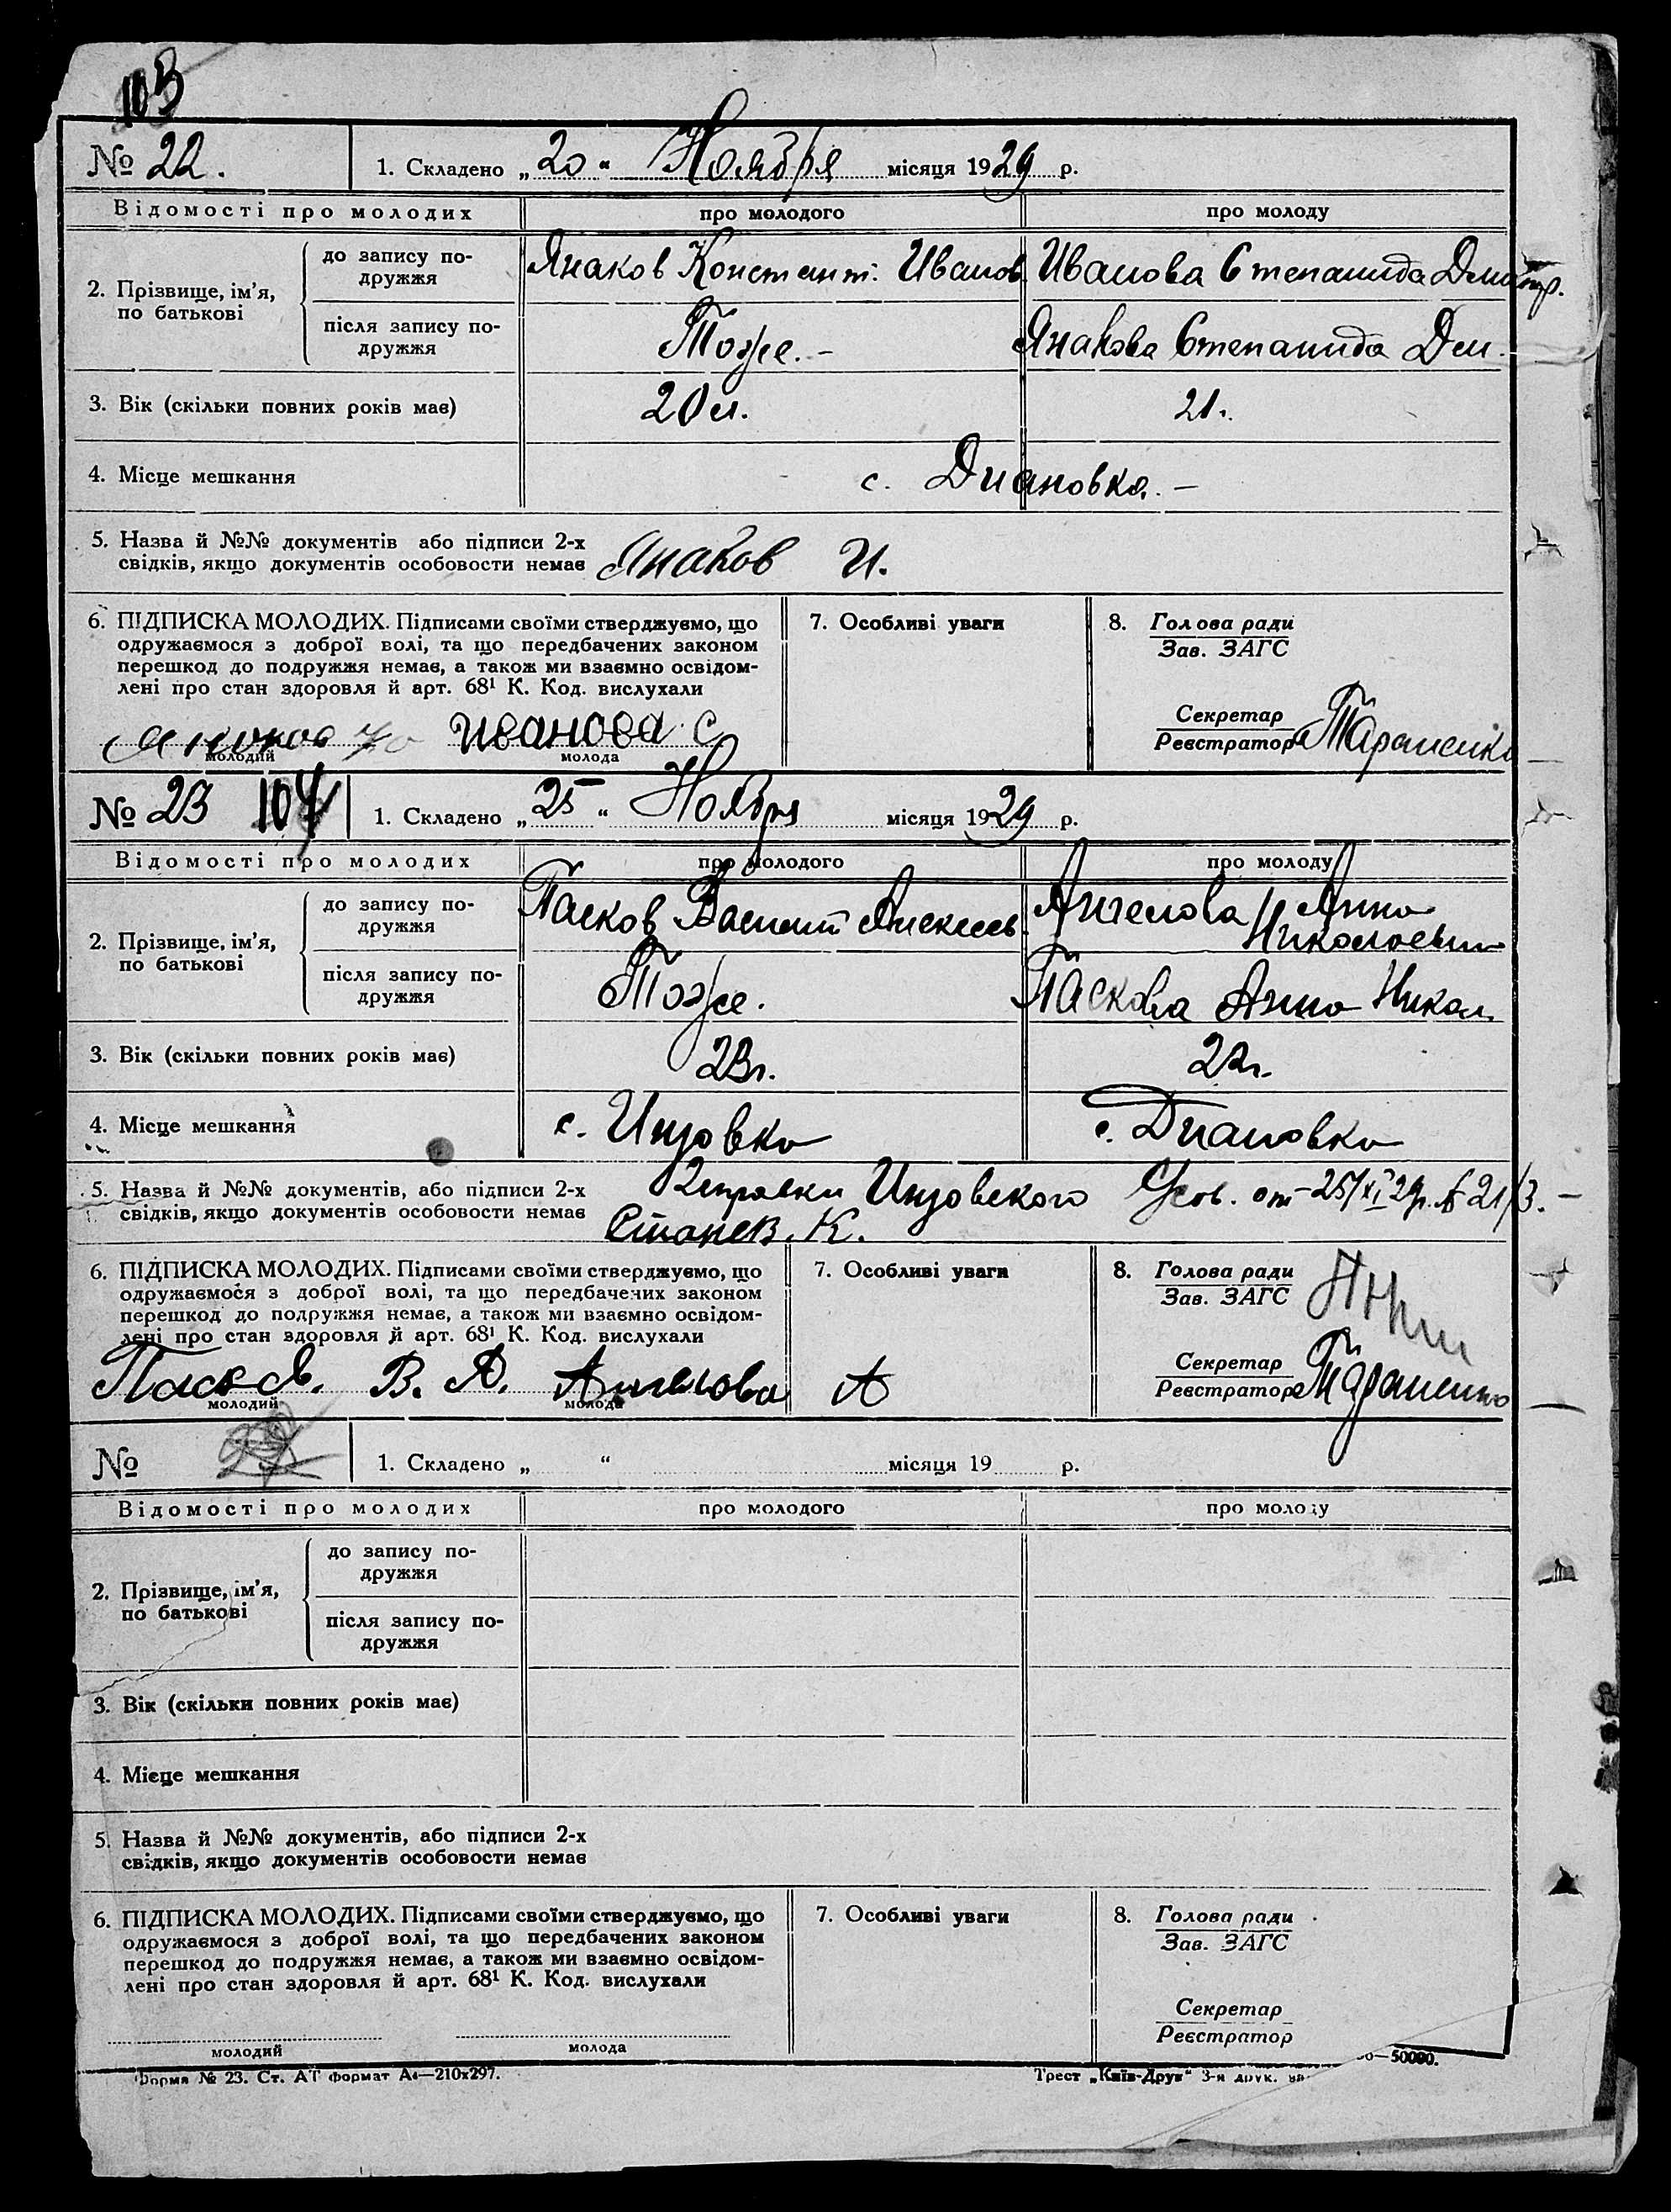 103
№ 22. 1. Складено „20“ Ноября місяця 1929 р.
Відомості про молодих про молодого про молоду
2. Прізвище, ім’я, по батькові
до запису по-
дружжя
Янаков Констант. Иванов Иванова Степанида Дмитр.
після запису по-
дружжя
Тоже. – Янакова Степанида Дм.
3. Вік (скільки повних років має) 20 л. 21 г.
4. Місце мешкання с. Диановка. –
5. Назва й №№ документів або підписи 2-х
свідків, якщо документів особовости немає Янаков И.
6. ПІДПИСКА МОЛОДИХ. Підписами своїми стверджуємо, що
одружаємося з доброї волі, та що передбачених законом
перешкод до подружжя немає, а також ми взаємно освідом-
лені про стан здоровля й арт. 68¹ К. Код. вислухали
Иванова С
молодий молода
7. Особливі уваги
8. Голова ради
Зав. ЗАГС
Секретар
Реєстратор Тараненко
№ 23 104 1. Складено „25“ Ноября місяця 1929 р.
Відомості про молодих про молодого про молоду
2. Прізвище, ім’я, по батькові
до запису по-
дружжя
Пасков Василий Алексеев. Ангелова Анна
Николаевна
після запису по-
дружжя
Тоже. Паскова Анна Никол.
3. Вік (скільки повних років має) 23 г. 22 г.
4. Місце мешкання с. Инзовка с. Диановка
5. Назва й №№ документів, або підписи 2-х
свідків, якщо документів особовости немає
Инзовского от 25/XI 29 г. № 21/3. –
К.
6. ПІДПИСКА МОЛОДИХ. Підписами своїми стверджуємо, що
одружаємося з доброї волі, та що передбачених законом
перешкод до подружжя немає, а також ми взаємно освідом-
лені про стан здоровля й арт. 68¹ К. Код. вислухали
Пасков. В. А. Ангелова А
молодий молода
7. Особливі уваги
8. Голова ради
Зав. ЗАГС
Секретар
Реєстратор Тараненко
№ 1. Складено „ “ місяця 19 р.
Відомості про молодих про молодого про молоду
2. Прізвище, ім’я, по батькові
до запису по-
дружжя
після запису по-
дружжя
3. Вік (скільки повних років має)
4. Місце мешкання
5. Назва й №№ документів, або підписи 2-х
свідків, якщо документів особовости немає
6. ПІДПИСКА МОЛОДИХ. Підписами своїми стверджуємо, що
одружаємося з доброї волі, та що передбачених законом
перешкод до подружжя немає, а також ми взаємно освідом-
лені про стан здоровля й арт. 68¹ К. Код. вислухали
молодий молода
7. Особливі уваги
8. Голова ради
Зав. ЗАГС
Секретар
Реєстратор
Форма № 23. Ст. АТ формат А4—210х297. Трест „Київ-Друк“ 3-я друк. —50000.